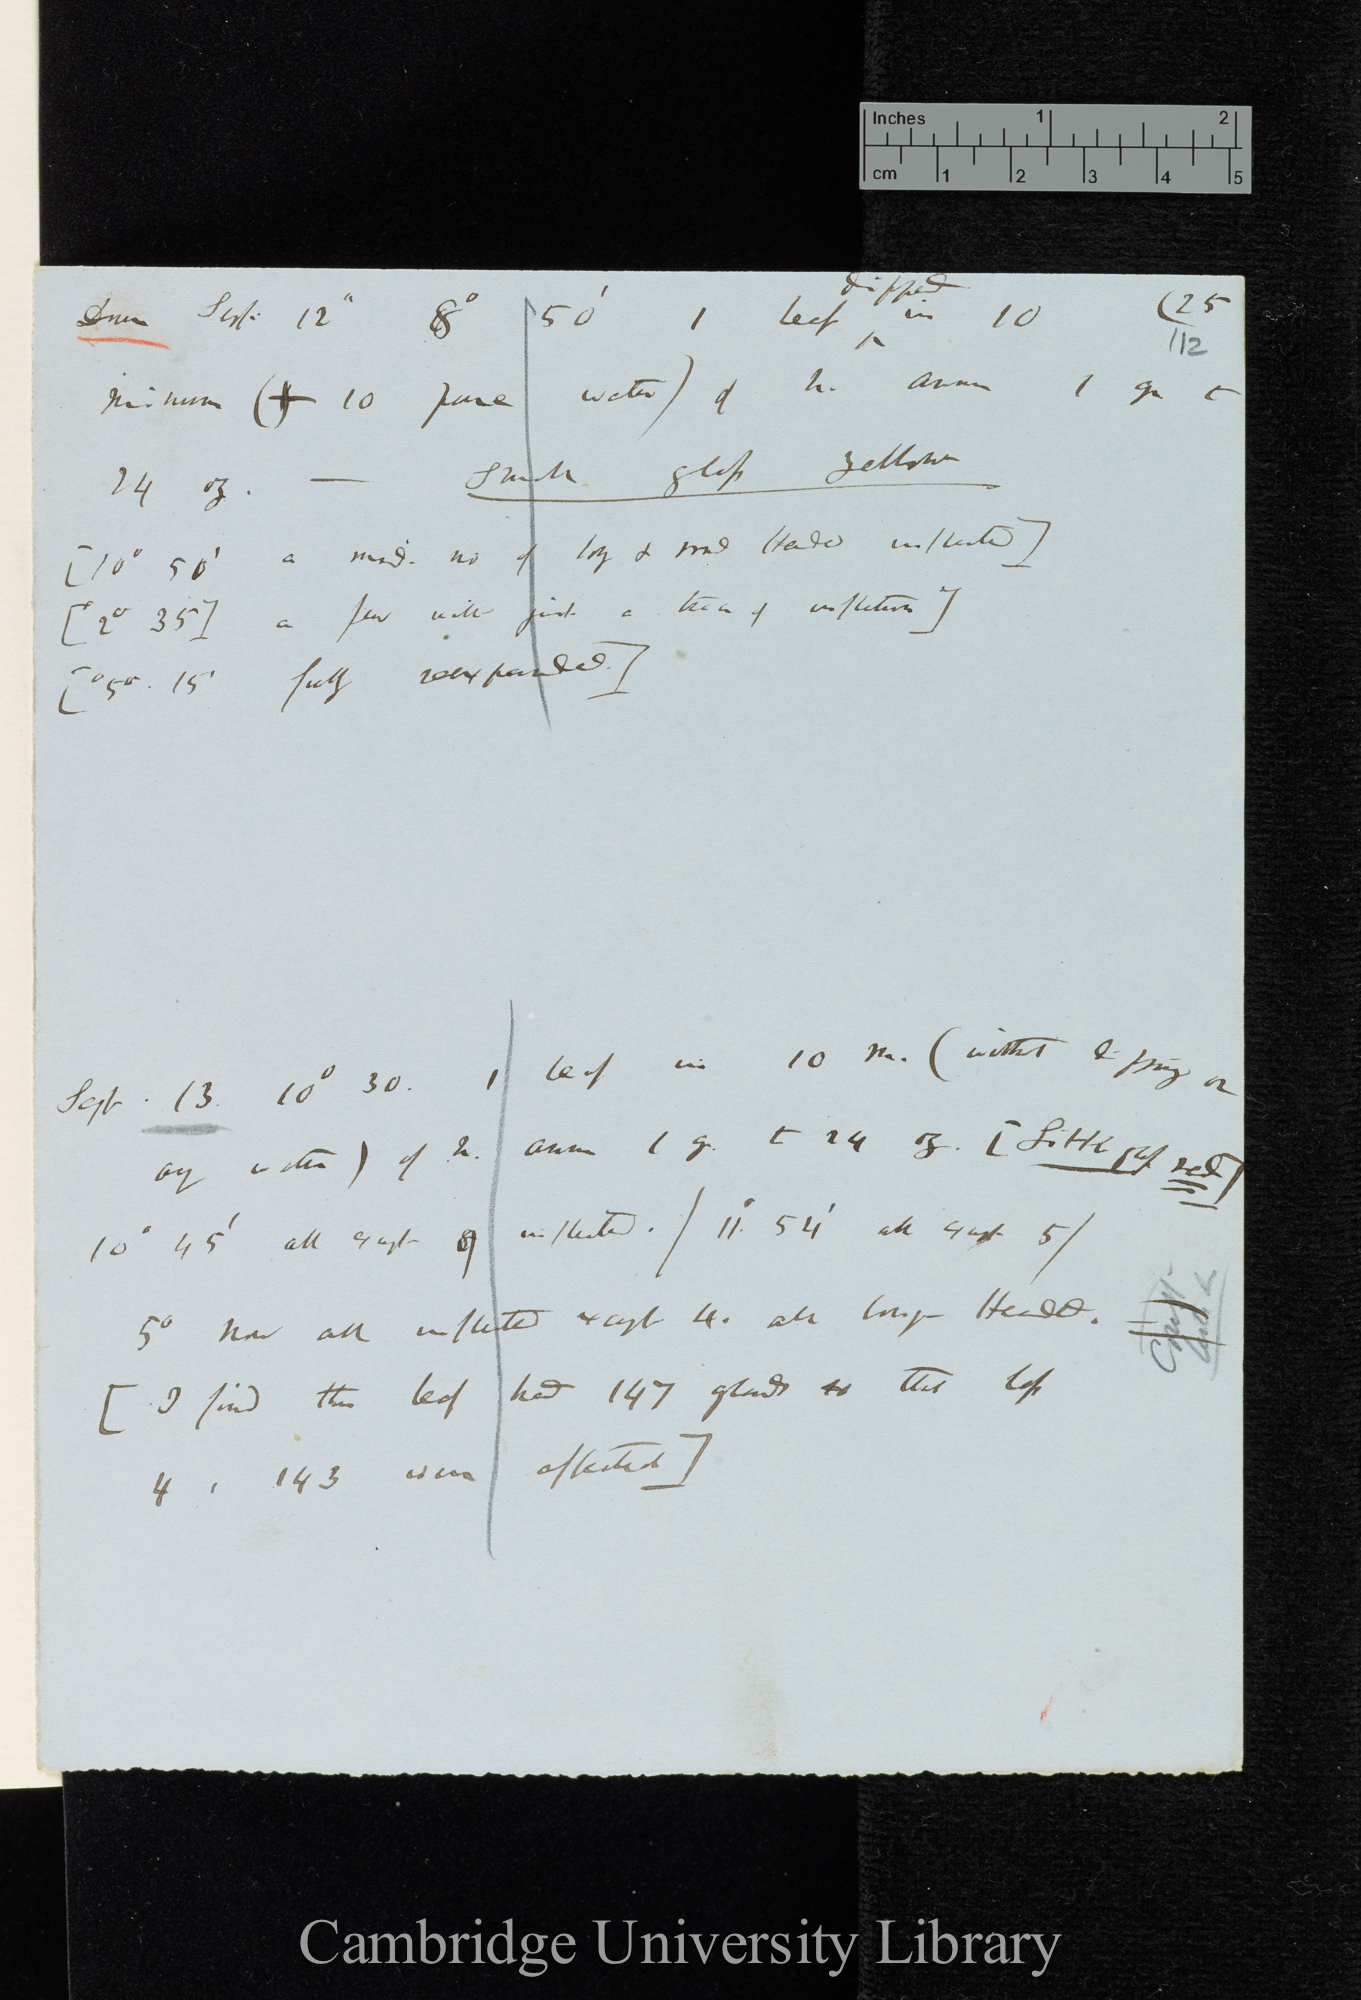 Inches 1 2
cm 1 2 3 4 5
dipped
Sept. 12" 8° 50' 1 leaf ^ in 10 (25
112
minims (+ 10 pure water) of n. amm 1 gr to
24 oz. — Small glass yellow
[10° 50' a mod. no of long & short Headed inflected]
[2° 35'] a few with just a trace of inflection]
[5° 15' fully reexpanded.]
Sept. 13. 10° 30. 1 leaf in 10 m. (without dipping or
any water) of n. amm 1 gr. to 24 oz. [Little glass red]
10° 45' all except 8 inflected. / 11° 54' all except 5/
5° Now all inflected except 4. all longer Headed.
[I find this leaf had 147 glands so that less
4, 143 were affected]
Cambridge University Library